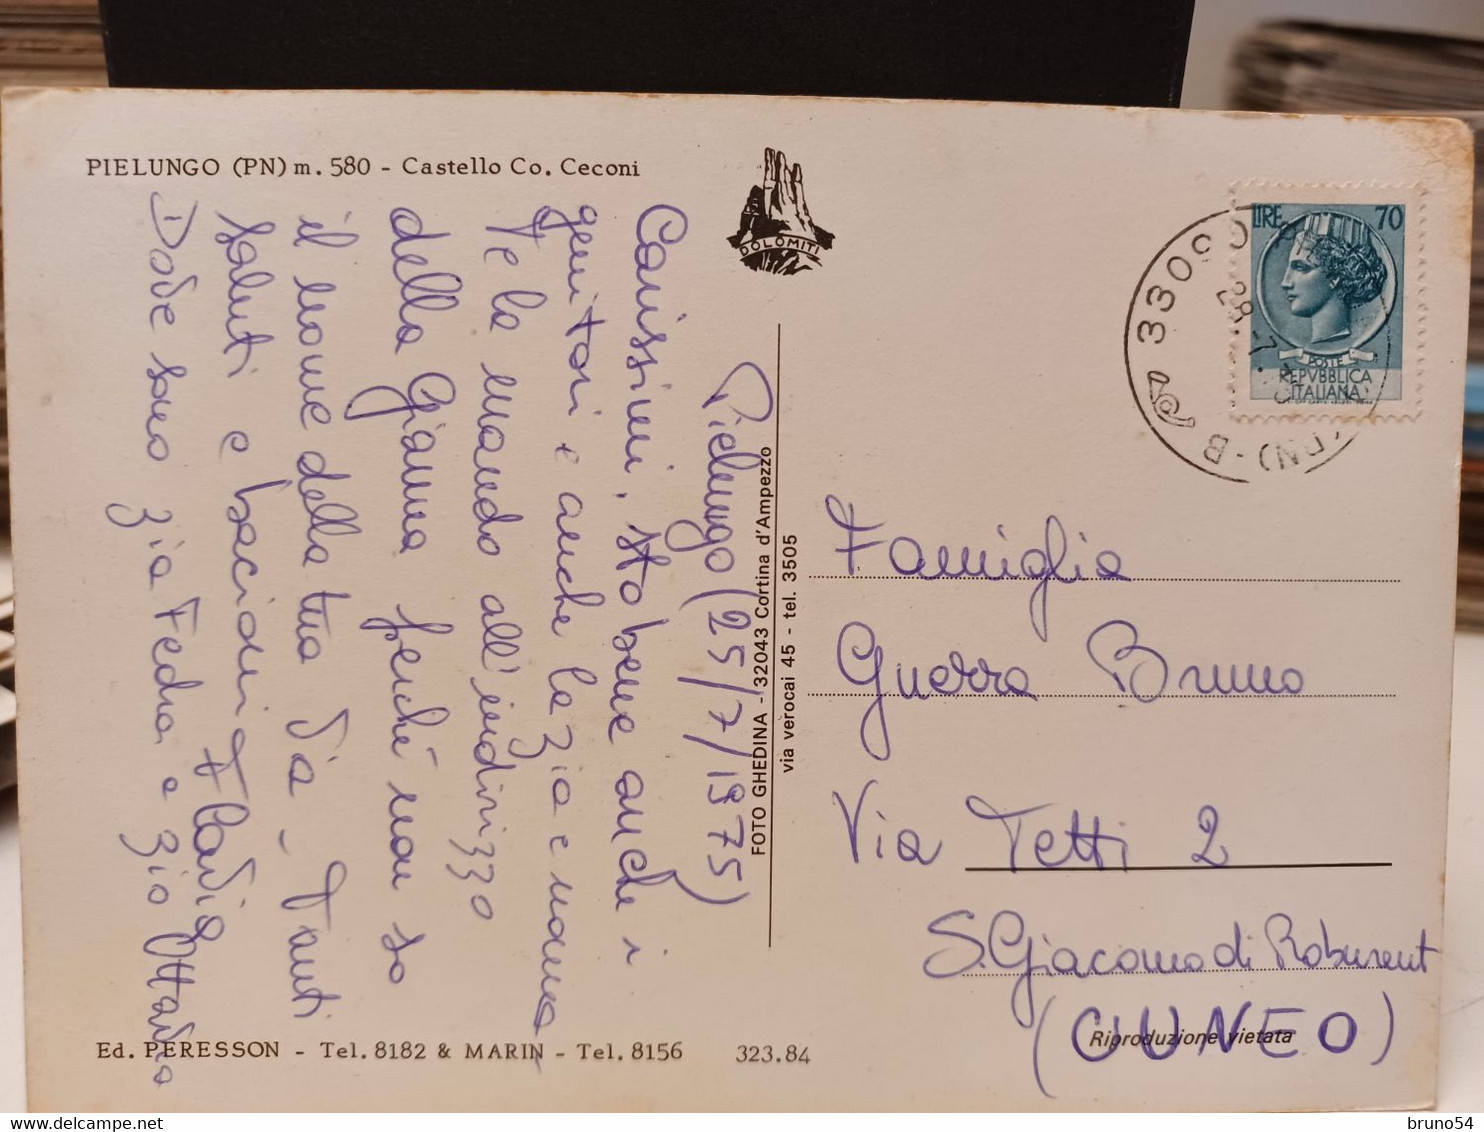 PIELUNGO (PN) m. 580 - Castello Co. Ceconi
DOLOMITI
Pielungo (25/7/1975)
Carissimi, sto bene anche i
genitori e anche la zia e nonna
Te la mando all'indirizzo
della Gianna perché non so
il nome della tua via - Tanti
saluti e bacioni Flavio
Dove sono zia Fedra e zio Ottavio
FOTO GHEDINA - 32043 Cortina d'Ampezzo
via verocai 45 - tel. 3505
LIRE 70
POSTE
REPVBBLICA
ITALIANA
3309
28 · 7
(PN) · B
Famiglia
Guerra Bruno
Via Tetti 2
S. Giacomo di Roburent
(CUNEO)
Riproduzione vietata
Ed. PERESSON - Tel. 8182 & MARIN - Tel. 8156
323.84
bruno54